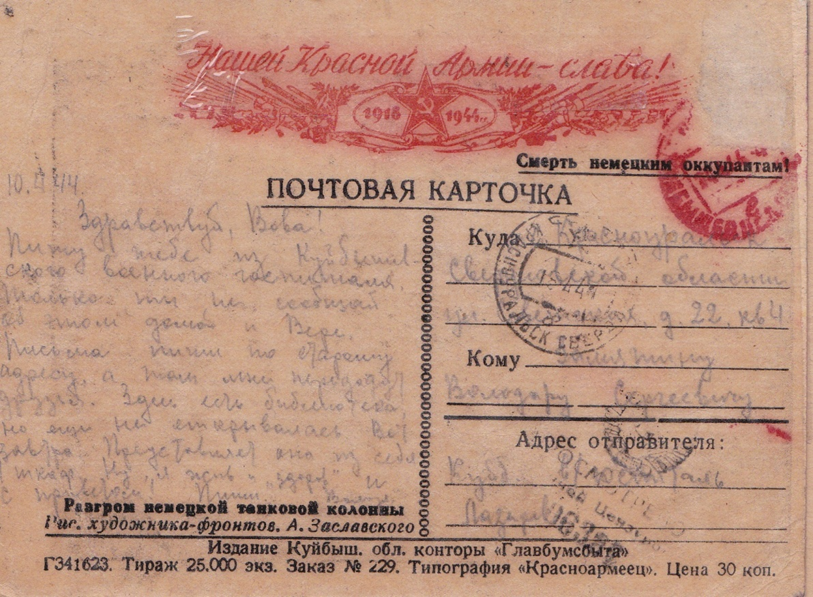 Нашей Красной Армии - слава!
1918 1944 г.
Смерть немецким оккупантам!
ПОЧТОВАЯ КАРТОЧКА
10.4.44
Здравствуй, Вова!
Пишу тебе из Куйбышев-
ского военного госпиталя.
Только ты не сообщай
об этом домой и Вере.
Письма пиши по старому
адресу, а там мне передадут
друзья. Здесь есть библиотека,
но ещё не открывалась
завтра. Представляет она из себя
шкаф.
с приветом! Пиши.
Разгром немецкой танковой колонны
Рис. художника-фронтов. А. Заславского
Куда Красноуральск
Свердловской области
ул. д. 22, кв 4
Кому Замятину
Володару Сергеевичу
Адрес отправителя:
Куйб.
Лазарев
КРАСНОУРАЛЬСК СВЕРД.
ПРОСМОТРЕНО
Военной Цензурой
КУЙБЫШЕВ
Издание Куйбыш. обл. конторы «Главбумсбыта»
Г341623. Тираж 25.000 экз. Заказ № 229. Типография «Красноармеец». Цена 30 коп.